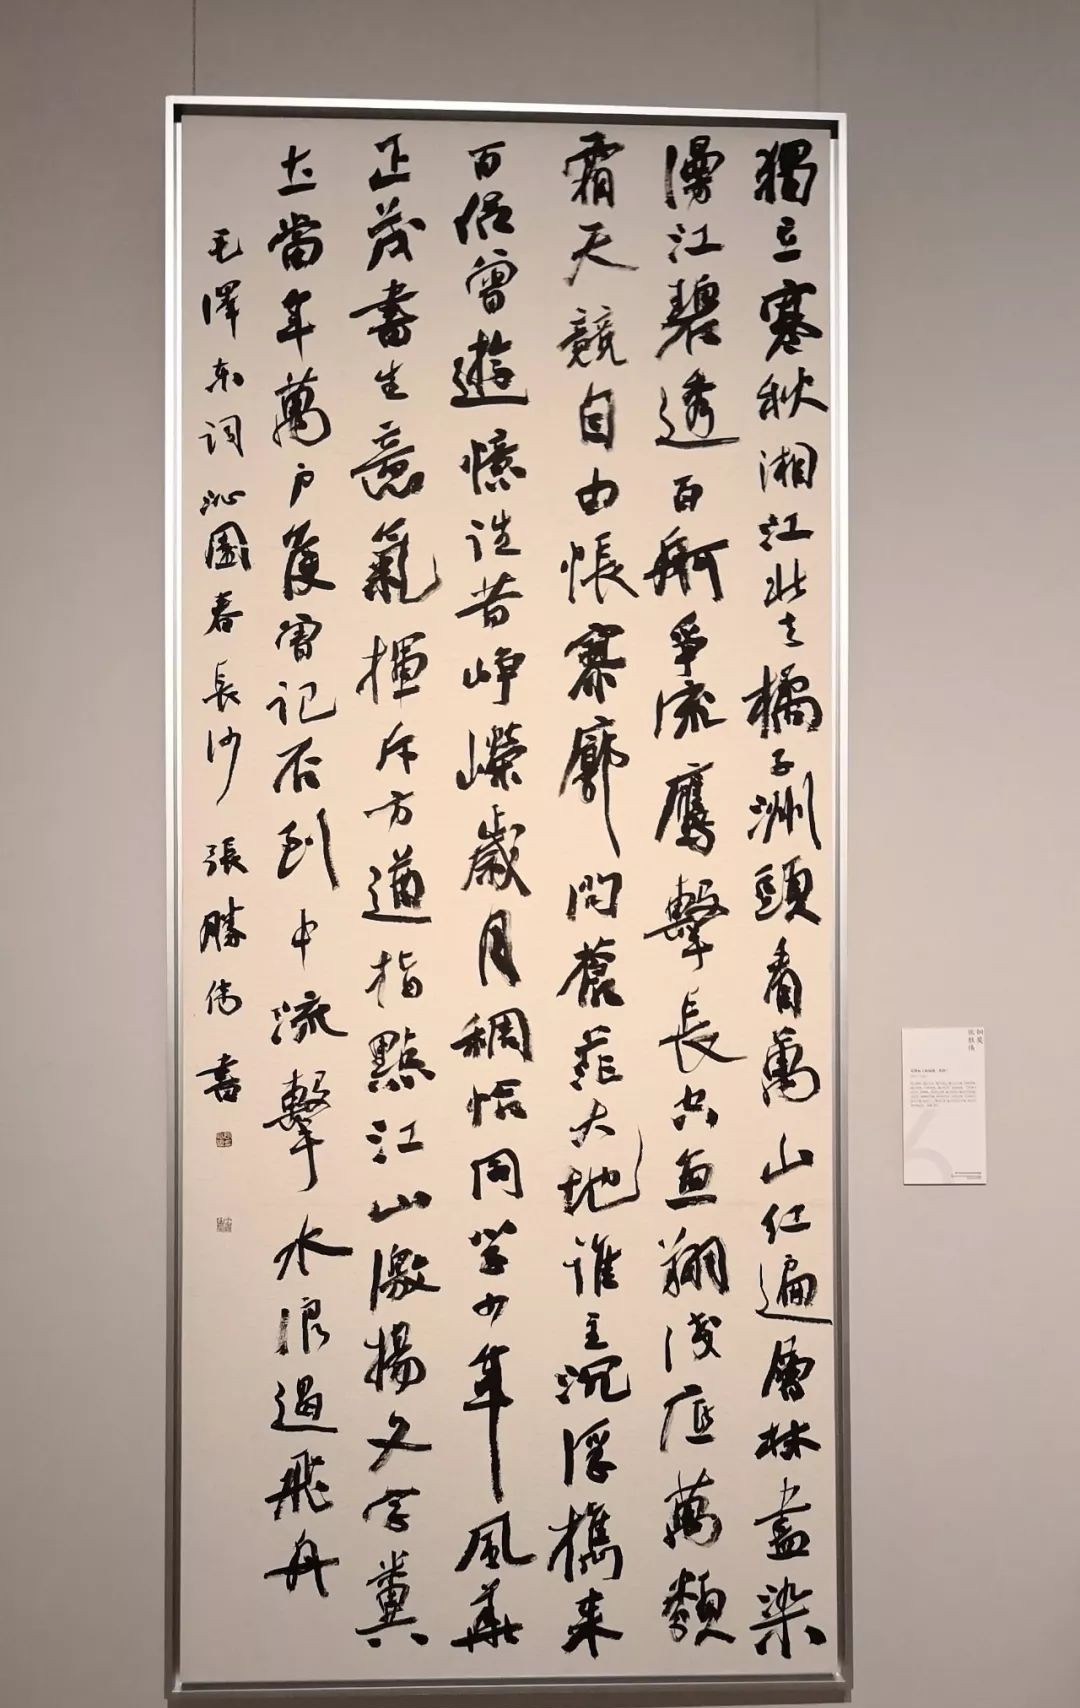 獨立寒秋湘江北去橘子洲頭看萬山红遍層林盡染
漫江碧透百舸爭流鷹擊長空魚翔淺底萬類
霜天競自由悵寥廓問蒼茫大地誰主沉浮攜來
百侣曾遊憶往昔崢嶸歲月稠恰同學少年風華
正茂書生意氣揮斥方遒指點江山激揚文字糞
土當年萬户侯曾記否到中流擊水浪遏飛舟
毛澤东词沁園春長沙 張勝伟書
铜奖
张胜伟